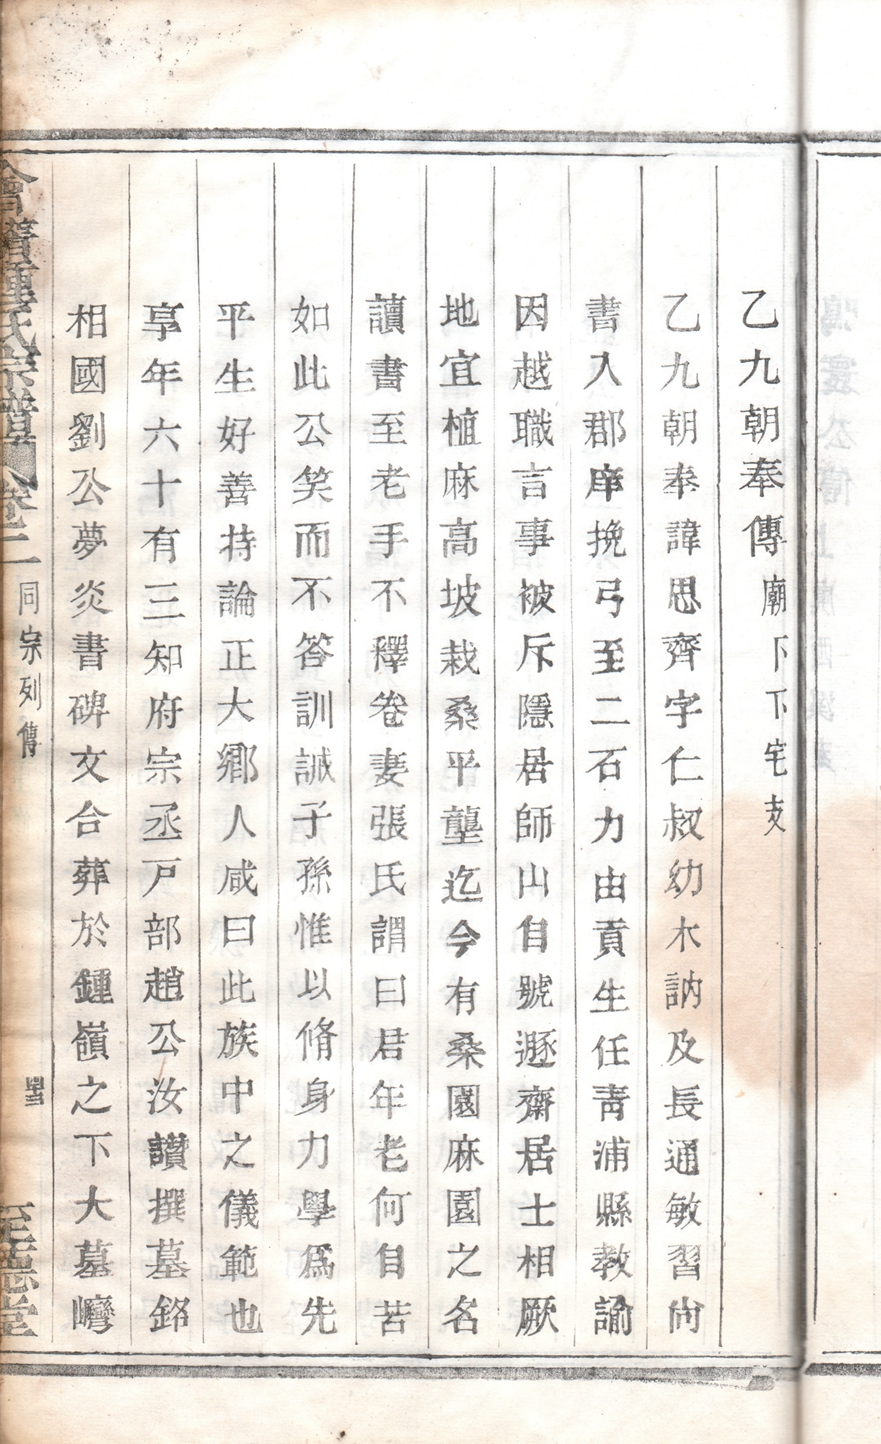 乙九朝奉傳 廟下下宅支
乙九朝奉諱思齊字仁叔幼木訥及長通敏習尙
書入郡庠挽弓至二石力由貢生任靑浦縣教諭
因越職言事被斥隱居師山自號遯齋居士相厥
地宜植麻高坡栽桑平壟迄今有桑園麻園之名
讀書至老手不釋卷妻張氏謂曰君年老何自苦
如此公笑而不答訓誡子孫惟以脩身力學爲先
平生好善持論正大鄉人咸曰此族中之儀範也
享年六十有三知府宗丞戸部趙公汝讃撰墓銘
相國劉公夢炎書碑文合葬於鍾嶺之下大墓巒
會稽鍾氏宗譜 卷二 同宗列傳 至德堂